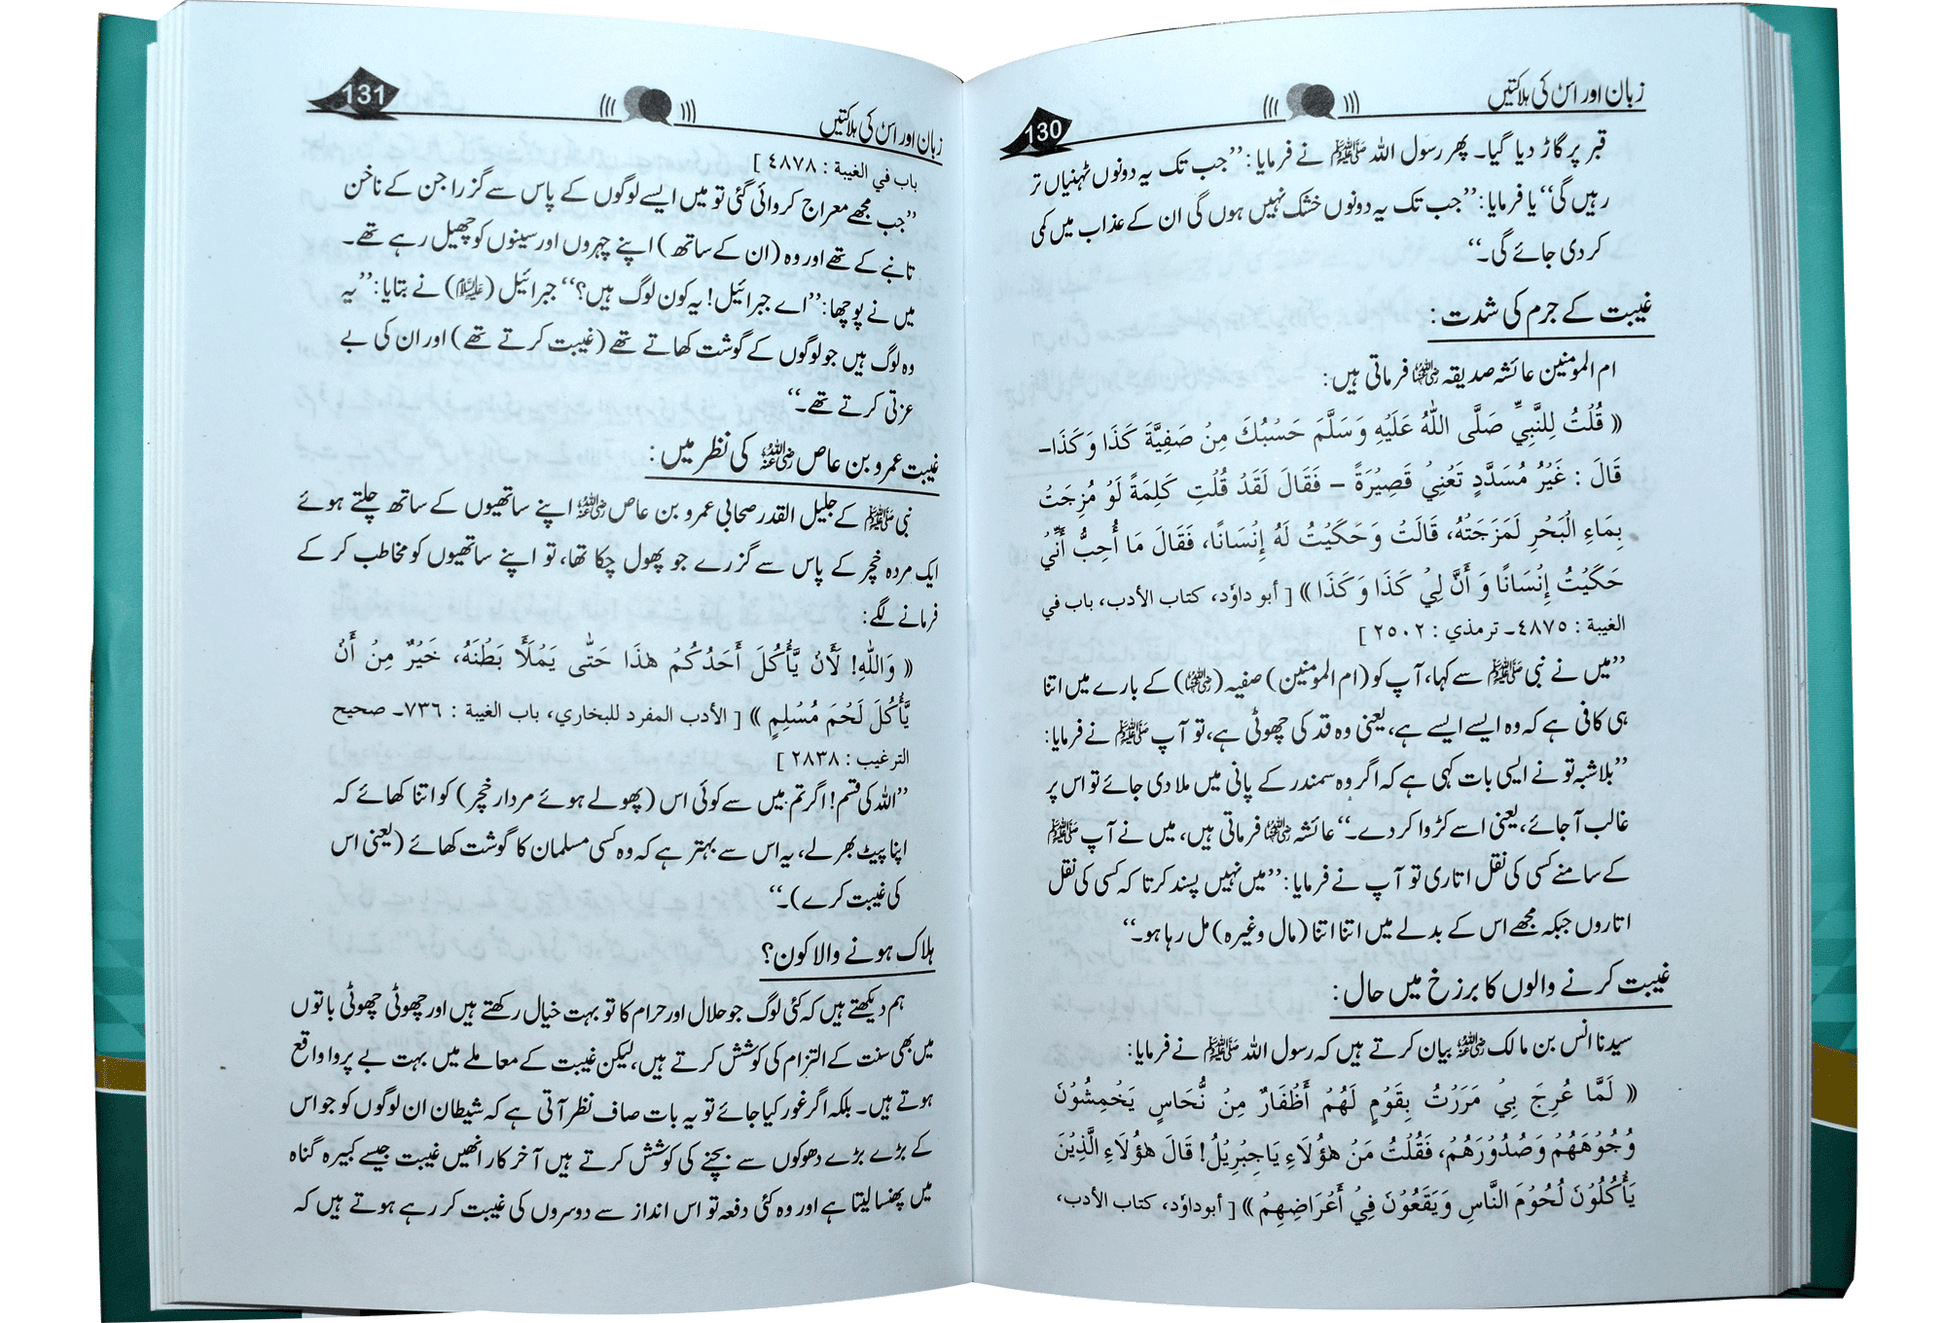 زبان اور اس کی ہلاکتیں
130
قبر پر گاڑ دیا گیا۔ پھر رسول اللہ ﷺ نے فرمایا: ’’جب تک یہ دونوں ٹہنیاں تر
رہیں گی‘‘ یا فرمایا: ’’جب تک یہ دونوں خشک نہیں ہوں گی ان کے عذاب میں کمی
کر دی جائے گی۔‘‘
غیبت کے جرم کی شدت:
ام المومنین عائشہ صدیقہ رضی اللہ عنہا فرماتی ہیں:
« قُلْتُ لِلنَّبِيِّ صَلَّى اللهُ عَلَيْهِ وَسَلَّمَ حَسْبُكَ مِنْ صَفِيَّةَ كَذَا وَكَذَا۔
قَالَ : غَيْرُ مُسَدَّدٍ تَعْنِي قَصِيْرَةً – فَقَالَ لَقَدْ قُلْتِ كَلِمَةً لَوْ مُزِجَتْ
بِمَاءِ الْبَحْرِ لَمَزَجَتْهُ، قَالَتْ وَحَكَيْتُ لَهُ إِنْسَانًا، فَقَالَ مَا أُحِبُّ أَنِّيْ
حَكَيْتُ إِنْسَانًا وَ أَنَّ لِيْ كَذَا وَكَذَا » [ أبو داوٗد، كتاب الأدب، باب في
الغيبة : ٤٨٧٥۔ ترمذي : ٢٥٠٢ ]
’’میں نے نبی ﷺ سے کہا، آپ کو (ام المومنین) صفیہ (رضی اللہ عنہا) کے بارے میں اتنا
ہی کافی ہے کہ وہ ایسے ایسے ہے، یعنی وہ قد کی چھوٹی ہے، تو آپ ﷺ نے فرمایا:
’’بلاشبہ تو نے ایسی بات کہی ہے کہ اگر وہ سمندر کے پانی میں ملا دی جائے تو اس پر
غالب آ جائے، یعنی اسے کڑوا کر دے۔‘‘ عائشہ رضی اللہ عنہا فرماتی ہیں، میں نے آپ ﷺ
کے سامنے کسی کی نقل اتاری تو آپ نے فرمایا: ’’میں نہیں پسند کرتا کہ کسی کی نقل
اتاروں جبکہ مجھے اس کے بدلے میں اتنا اتنا (مال وغیرہ) مل رہا ہو۔‘‘
غیبت کرنے والوں کا برزخ میں حال:
سیدنا انس بن مالک رضی اللہ عنہ بیان کرتے ہیں کہ رسول اللہ ﷺ نے فرمایا:
« لَمَّا عُرِجَ بِيْ مَرَرْتُ بِقَوْمٍ لَهُمْ أَظْفَارٌ مِنْ نُّحَاسٍ يَخْمِشُوْنَ
وُجُوْهَهُمْ وَصُدُوْرَهُمْ، فَقُلْتُ مَنْ هٰؤُلَاءِ يَاجِبْرِيْلُ! قَالَ هٰؤُلَاءِ الَّذِيْنَ
يَأْكُلُوْنَ لُحُوْمَ النَّاسِ وَيَقَعُوْنَ فِيْ أَعْرَاضِهِمْ » [ أبوداوٗد، كتاب الأدب،
زبان اور اس کی ہلاکتیں
131
باب في الغيبة : ٤٨٧٨ ]
’’جب مجھے معراج کروائی گئی تو میں ایسے لوگوں کے پاس سے گزرا جن کے ناخن
تانبے کے تھے اور وہ (ان کے ساتھ) اپنے چہروں اور سینوں کو چھیل رہے تھے۔
میں نے پوچھا: ’’اے جبرائیل! یہ کون لوگ ہیں؟‘‘ جبرائیل (علیہ السلام) نے بتایا: ’’یہ
وہ لوگ ہیں جو لوگوں کے گوشت کھاتے تھے (غیبت کرتے تھے) اور ان کی بے
عزتی کرتے تھے۔‘‘
غیبت عمرو بن عاص رضی اللہ عنہ کی نظر میں:
نبی ﷺ کے جلیل القدر صحابی عمرو بن عاص رضی اللہ عنہ اپنے ساتھیوں کے ساتھ چلتے ہوئے
ایک مردہ خچر کے پاس سے گزرے جو پھول چکا تھا، تو اپنے ساتھیوں کو مخاطب کر کے
فرمانے لگے:
« وَاللهِ! لَأَنْ يَّأْكُلَ أَحَدُكُمْ هٰذَا حَتّٰى يَمْلَأَ بَطْنَهُ، خَيْرٌ مِنْ أَنْ
يَّأْكُلَ لَحْمَ مُسْلِمٍ » [ الأدب المفرد للبخاري، باب الغيبة : ٧٣٦۔ صحيح
الترغيب : ٢٨٣٨ ]
’’اللہ کی قسم! اگر تم میں سے کوئی اس (پھولے ہوئے مردار خچر) کو اتنا کھائے کہ
اپنا پیٹ بھر لے، یہ اس سے بہتر ہے کہ وہ کسی مسلمان کا گوشت کھائے (یعنی اس
کی غیبت کرے)۔‘‘
ہلاک ہونے والا کون؟
ہم دیکھتے ہیں کہ کئی لوگ جو حلال اور حرام کا تو بہت خیال رکھتے ہیں اور چھوٹی چھوٹی باتوں
میں بھی سنت کے التزام کی کوشش کرتے ہیں، لیکن غیبت کے معاملے میں بہت بے پروا واقع
ہوتے ہیں۔ بلکہ اگر غور کیا جائے تو یہ بات صاف نظر آتی ہے کہ شیطان ان لوگوں کو جو اس
کے بڑے بڑے دھوکوں سے بچنے کی کوشش کرتے ہیں آخر کار انھیں غیبت جیسے کبیرہ گناہ
میں پھنسا لیتا ہے اور وہ کئی دفعہ تو اس انداز سے دوسروں کی غیبت کر رہے ہوتے ہیں کہ